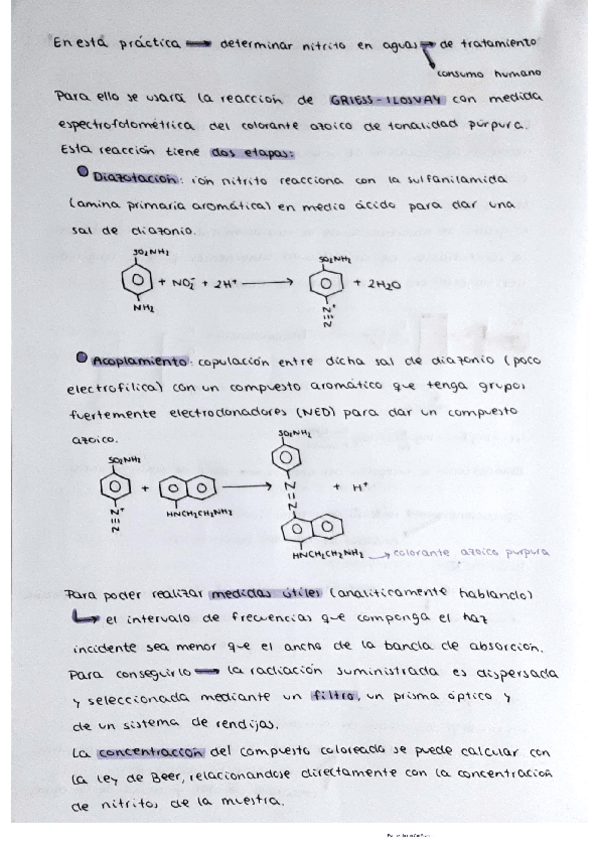 En esta práctica → determinar nitrito en aguas → de tratamiento
consumo humano
Para ello se usará la reacción de GRIESS-ILOSVAY con medida
espectrofotométrica del colorante azoico de tonalidad púrpura.
Esta reacción tiene dos etapas:
Diazotación: ión nitrito reacciona con la sulfanilamida
(amina primaria aromática) en medio ácido para dar una
sal de diazonio.
SO2NH2
SO2NH2
+ NO2- + 2H+ → + 2H2O
NH2
N+
N
Acoplamiento: copulación entre dicha sal de diazonio (poco
electrofílica) con un compuesto aromático que tenga grupos
fuertemente electrodonadores (NED) para dar un compuesto
azoico.
SO2NH2
SO2NH2
+ → + H+
N
N
N+
N
HNCH2CH2NH2
HNCH2CH2NH2 → colorante azoico púrpura
Para poder realizar medidas útiles (analíticamente hablando)
↳ el intervalo de frecuencias que componga el haz
incidente sea menor que el ancho de la banda de absorción.
Para conseguirlo → la radiación suministrada es dispersada
y seleccionada mediante un filtro, un prisma óptico y
de un sistema de rendijas.
La concentración del compuesto coloreado se puede calcular con
la ley de Beer, relacionandose directamente con la concentración
de nitritos de la muestra.